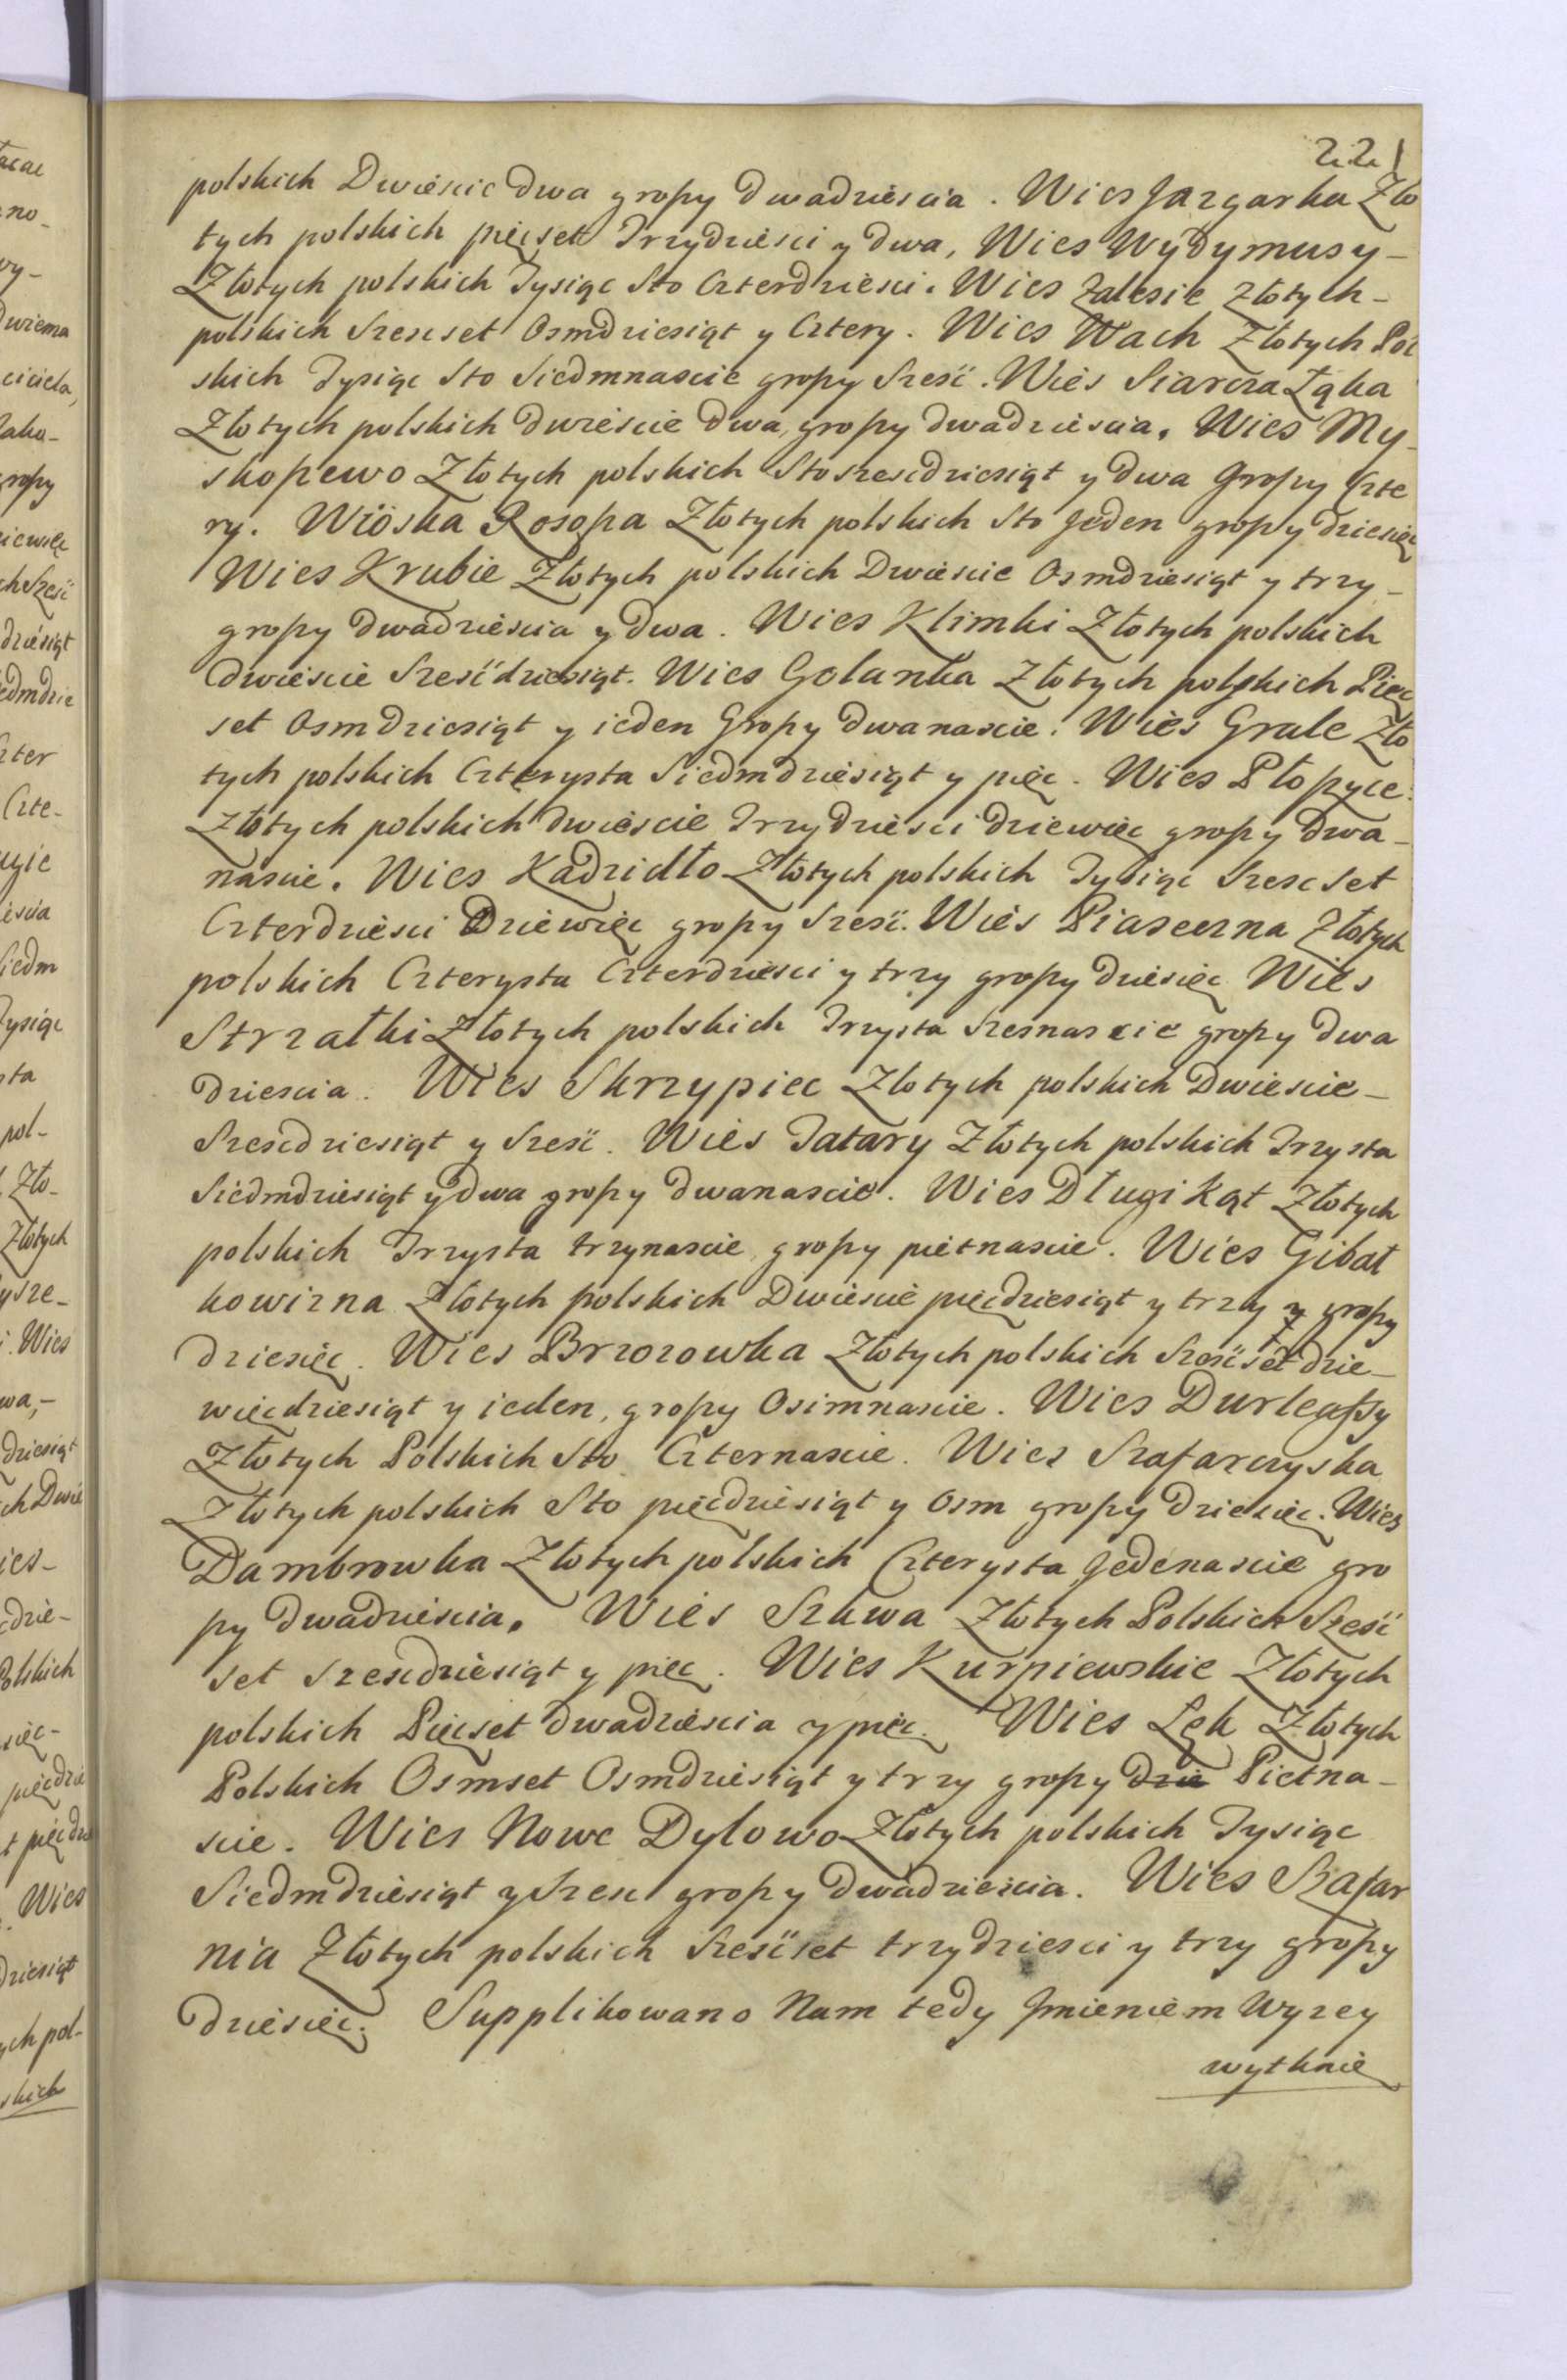 221
polskich Dwiescie dwa groszy dwadziescia. Wies Jazgarka Zło
tych polskich pięcset Trzydziesci y dwa, Wies Wydymusy –
Złotych polskich Tysiąc Sto Czterdziesci. Wies Zalesie Złotych –
polskich Szescset Osmdziesiąt y Cztery. Wies Wach Złotych Pol
skich Tysiąc Sto Siedmnascie groszy Szesć. Wies Siarcza Łąka
Złotych polskich dwiescie dwa, groszy dwadziescia. Wies My-
skoszewo Złotych polskich Sto szescdziesiąt y dwa Groszy Czte
ry. Wioska Rososza Złotych polskich Sto Jeden groszy dziesięc
Wies Krubie Złotych polskich Dwiescie Osmdziesiąt y trzy –
groszy dwadziescia y dwa. Wies Klimki Złotych polskich
dwiescie Szesćdziesiąt. Wies Golanka Złotych polskich Pięc
set Osmdziesiąt y ieden Groszy dwanascie. Wies Grale Zło
tych polskich Czterysta Siedmdziesiąt y pięc. Wies Płoszyce
Złotych polskich dwiescie Trzydziesci dziewięc groszy dwa-
nascie. Wies Kadzidło Złotych polskich Tysiąc Szescset
Czterdziesci Dziewięc groszy Szesć. Wies Piaseczna Złotych
polskich Czterysta Czterdziesci y trzy groszy dziesięc Wies
Strzałki Złotych polskich Trzysta Szesnascie groszy dwa
dziescia. Wies Skrzypiec Złotych polskich Dwiescie –
Szescdziesiąt y Szesć. Wies Tatary Złotych polskich Trzysta
Siedmdziesiąt y dwa groszy dwanascie. Wies Długi Kąt Złotych
polskich Trzysta trzynascie groszy piętnascie. Wies Gibał
kowizna Złotych polskich Dwiescie pięcdziesiąt y trzy y groszy
dziesięc. Wies Brzozowka Złotych polskich Szesćset dzie-
więcdziesiąt y ieden, groszy Osimnascie. Wies Durlassy
Złotych Polskich Sto Czternascie. Wies Szafarczyska
Złotych polskich Sto pięcdziesiąt y Osm groszy dziesięc. Wies
Dambrowka Złotych polskich Czterysta Jedenascie gro
szy dwadziescia. Wies Szkwa Złotych Polskich Szesć
set szescdziesiąt y pięc. Wies Kurpiewskie Złotych
polskich Pięcset dwadziescia y pięc. Wies Łęk Złotych
Polskich Osmset Osmdziesiąt y trzy groszy dzie Piętna-
scie. Wies Nowe Dylowo Złotych polskich Tysiąc
Siedmdziesiąt y Szesc groszy dwadziescia. Wies Szafar
nia Złotych polskich Szesćset trzydziesci y trzy groszy
dziesięc. Supplikowano Nam tedy Jmieniem Wyzey
wytknię